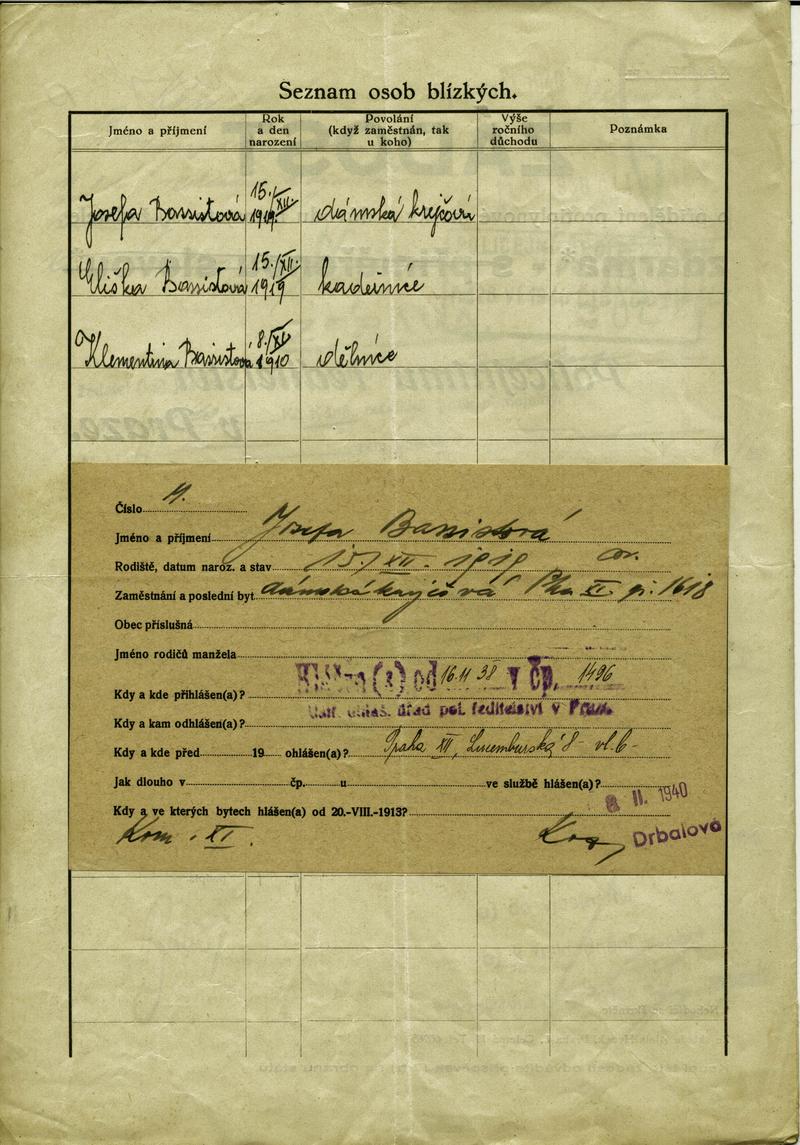 Seznam osob blízkých.
Jméno a příjmení
Rok a den narození
Povolání (když zaměstnán, tak u koho)
Výše ročního důchodu
Poznámka
Josefa Bassistová 15./XII. 1919. dámská krejčová
Eliška Bassistová 15./XII. 1919 kadeřnice
Klementina Bassistová 8./XI. 1910 dělnice
Číslo
Jméno a příjmení Josefa Bassistová
Rodiště, datum naroz. a stav 15/XII. 1919
Zaměstnání a poslední byt dámská krejčová Pha XI. čp. 1618
Obec příslušná
Jméno rodičů manžela
Hlášen(a) od 16.11 38 v čp. 1496
Kdy a kde přihlášen(a)?
úřad pol. ředitelství v Praze
Kdy a kam odhlášen(a)?
Kdy a kde před 19 ohlášen(a)? Praha XII, Lucemburská 8
Jak dlouho v čp. u ve službě hlášen(a)?
II. 1940
Kdy a ve kterých bytech hlášen(a) od 20.-VIII.-1913?
Kom. XI.
Drbalová